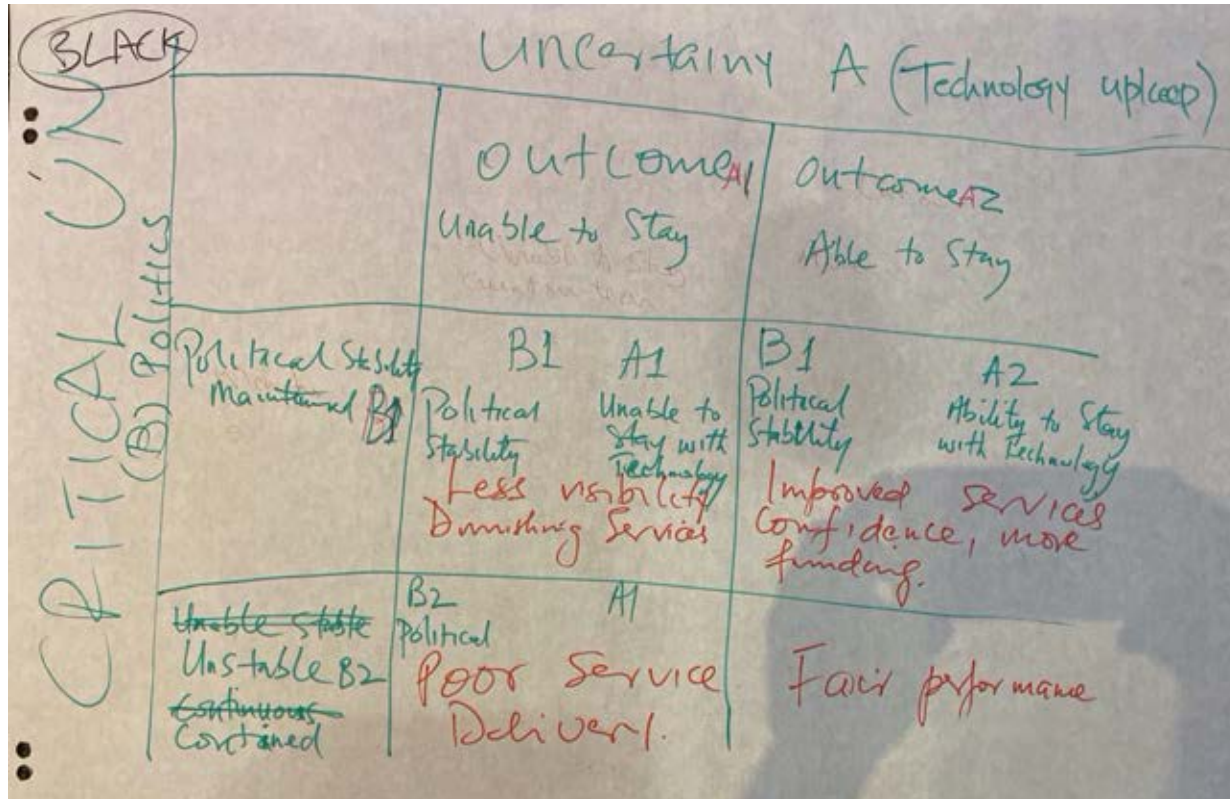 BLACK
Uncertainy A (Technology upkeep)
CRITICAL UN
(B) Politics
Outcome A1
Unable to Stay
Outcome A2
Able to Stay
Political Stability
Maintained B1
B1 A1
Political
Stability
Unable to
Stay with
Technology
Less visibility
Dimishing Services
B1
Political
Stability
A2
Ability to Stay
with Technology
Improved services
Confidence, more
funding.
Unable Stable
Unstable B2
Continuous
Contained
B2 A1
Political
Poor Service
Delivery.
Fair performance